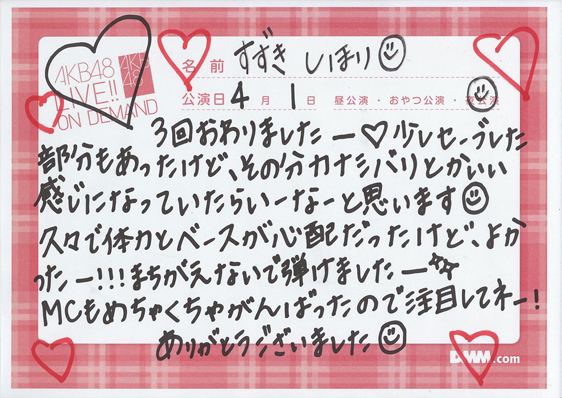 AKB48
LIVE!!
ON DEMAND
AKB
48
名前 すずき しほり
公演日 4月 1日 昼公演・おやつ公演・夜公演
3回おわりましたー♡少しセーブした
部分もあったけど、その分カナシバリとかいい
感じになっていたらいーなーと思います
久々で体力とベースが心配だったけど、よか
ったー!!!まちがえないで弾けましたー☆☆
MCもめちゃくちゃがんばったので注目してネー!
ありがとうございました
DMM.com